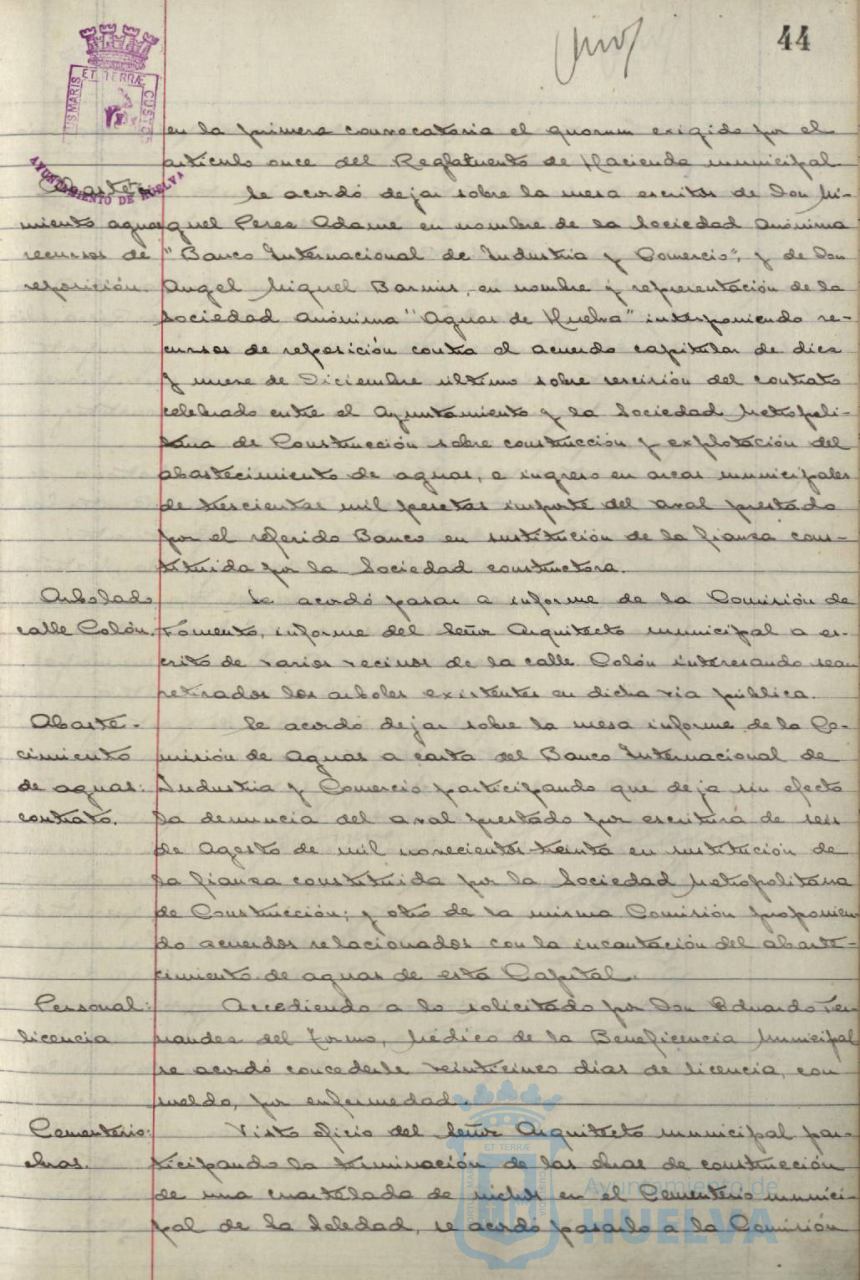 44
ET TERRÆ
CUSTOS
AYUNTAMIENTO DE HUELVA
en la primera convocatoria el quorum exigido por el
artículo once del Reglamento de Hacienda municipal.
Abaste-
Se acordó dejar sobre la mesa escritos de Don Mi-
miento aguas
guel Perez Adame en nombre de la Sociedad Anónima
recursos de
"Banco Internacional de Industria y Comercio", y de Don
reposición.
Angel Miguel Barnis, en nombre y representación de la
Sociedad Anónima "Aguas de Huelva" interponiendo re-
cursos de reposición contra el acuerdo capitular de diez
y nueve de Diciembre último sobre rescisión del contrato
celebrado entre el Ayuntamiento y la Sociedad Metropoli-
tana de Construcción sobre construcción y explotación del
abastecimiento de aguas, e ingreso en arcas municipales
de trescientas mil pesetas importe del aval prestado
por el referido Banco en sustitución de la fianza cons-
tituida por la Sociedad constructora.
Arbolado
Se acordó pasar a informe de la Comisión de
calle Colón.
Fomento, informe del Señor Arquitecto municipal a es-
crito de varios vecinos de la calle Colón interesando sean
retirados los arboles existentes en dicha via pública.
Abaste-
Se acordó dejar sobre la mesa informe de la Co-
cimiento
misión de Aguas a carta del Banco Internacional de
de aguas:
Industria y Comercio participando que deja sin efecto
contrato.
la denuncia del aval prestado por escritura de seis
de Agosto de mil novecientos treinta en sustitución de
la fianza constituida por la Sociedad Metropolitana
de Construcción; y otro de la misma Comisión proponien
do acuerdos relacionados con la incautación del abaste-
cimiento de aguas de esta Capital.
Personal:
Accediendo a lo solicitado por Don Eduardo Fer-
licencia
nandez del Tormo, Médico de la Beneficencia Municipal
se acordó concederle veinticinco dias de licencia, con
sueldo, por enfermedad.
Cementerio:
Visto oficio del Señor Arquitecto municipal par-
obras.
ticipando la terminación de las obras de construcción
de una cuartelada de nichos en el Cementerio munici-
pal de la Soledad, se acordó pasarlo a la Comisión
ET TERRÆ
Ayuntamiento de
HUELVA